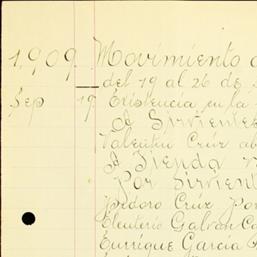 1,909 Movimiento d
del 19 al 26 de S
Sep 19 Existencia en la
a Sirvientes
Valentin Crúz ab
a Tienda
Por Sirvient
Isidoro Crúz Por
Eleuterio Galván Co
Enrrique García